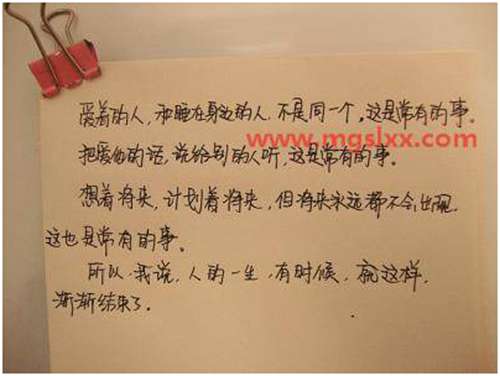 爱着的人,和睡在身边的人,不是同一个。这是常有的事。
www.mgslxx.com
把爱你的话,说给别的人听,这是常有的事。
想着将来,计划着将来,但将来永远都不会出现,
这也是常有的事。
所以,我说,人的一生,有时候,就这样,
渐渐结束了.